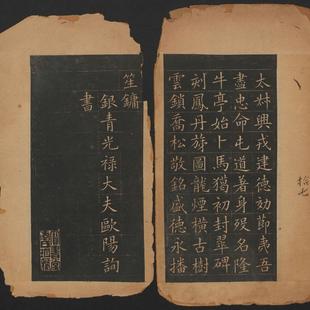 太叔興戎建德効節夷吾
盡忠命屯道著身歿名隆
牛亭始卜馬鬣初封翠碑
刻鳳丹旐圖龍煙橫古樹
雲鎖喬松敬銘盛德永播
笙鏞
銀青光祿大夫歐陽詢
書
拾七